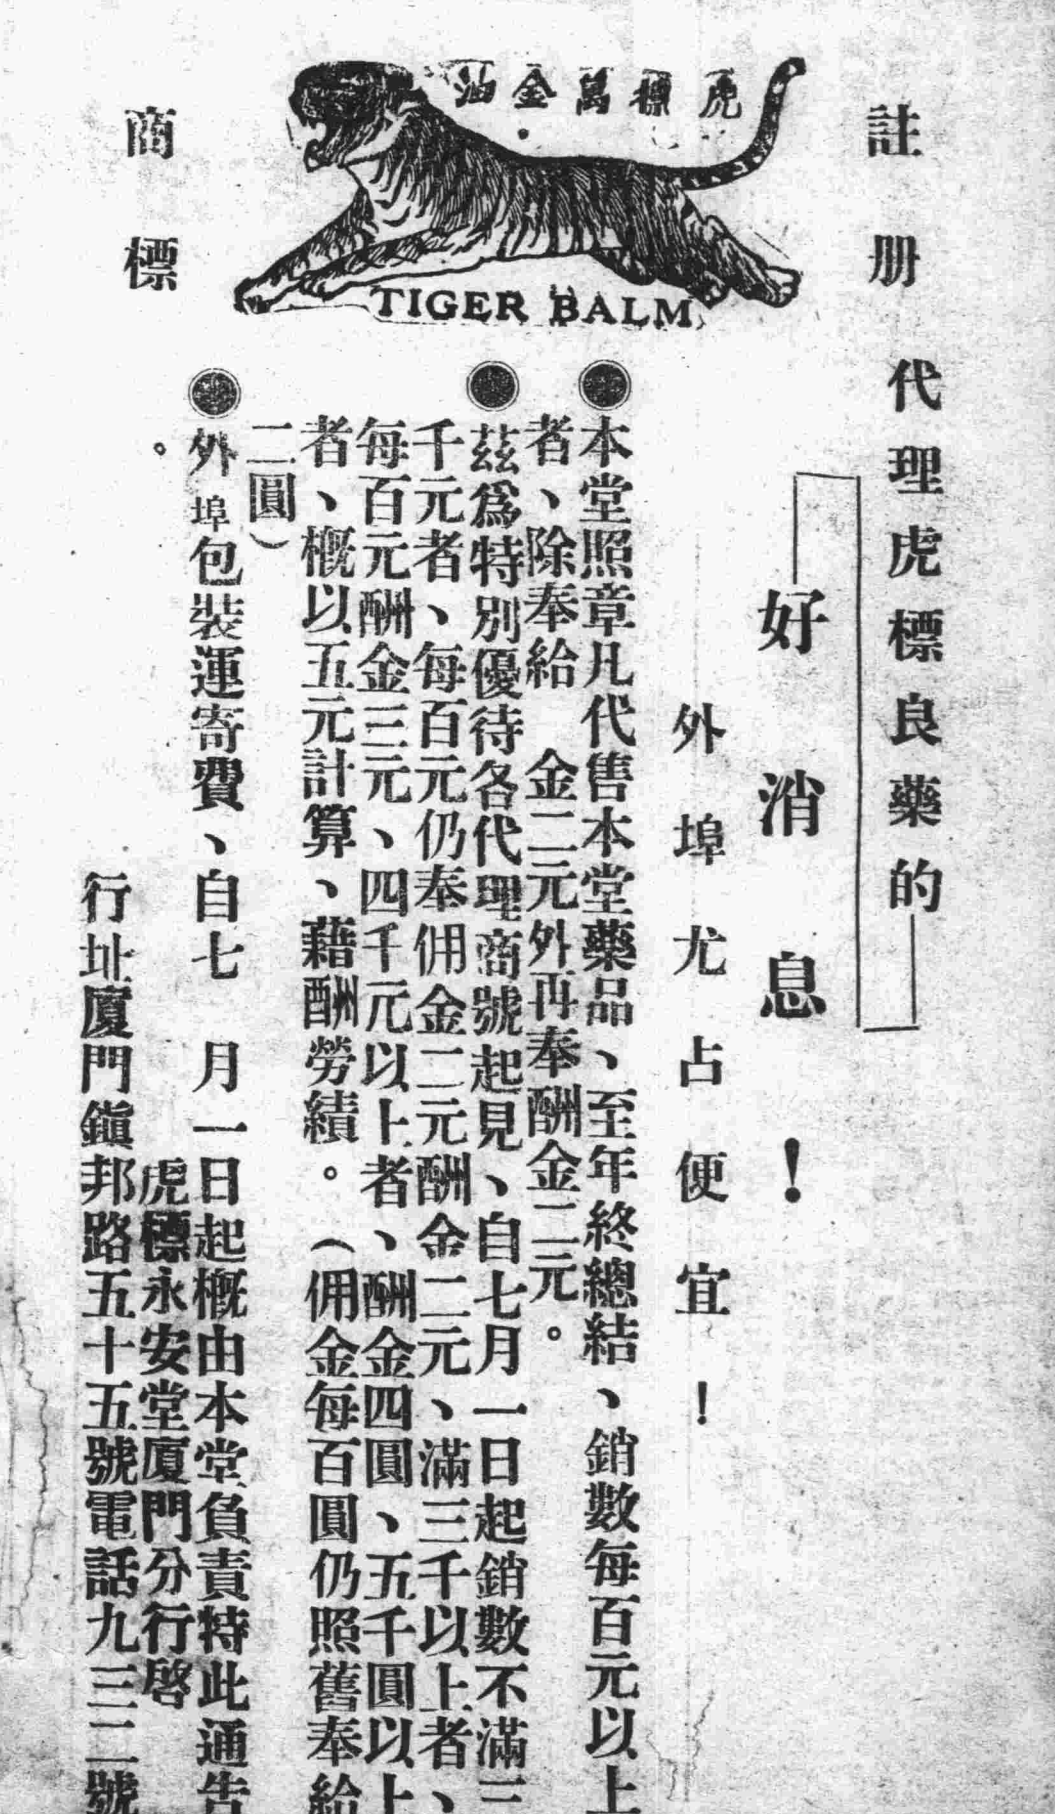 註册
商標
虎標萬金油
TIGER BALM
代理虎標良藥的
好消息！
外埠尤占便宜！
●本堂照章凡代售本堂藥品、至年終總結、銷數每百元以上
者、除奉給 金二元外再奉酬金二元。
●茲爲特別優待各代理商號起見、自七月一日起銷數不滿三
千元者、每百元仍奉佣金二元酬金二元、滿三千以上者、
每百元酬金三元、四千元以上者、酬金四圓、五千圓以上
者、概以五元計算、藉酬勞績。（佣金每百圓仍照舊奉給
二圓）
●外埠包裝運寄費、自七 月一日起概由本堂負責特此通告
。
虎標永安堂廈門分行啓
行址廈門鎭邦路五十五號電話九三二號